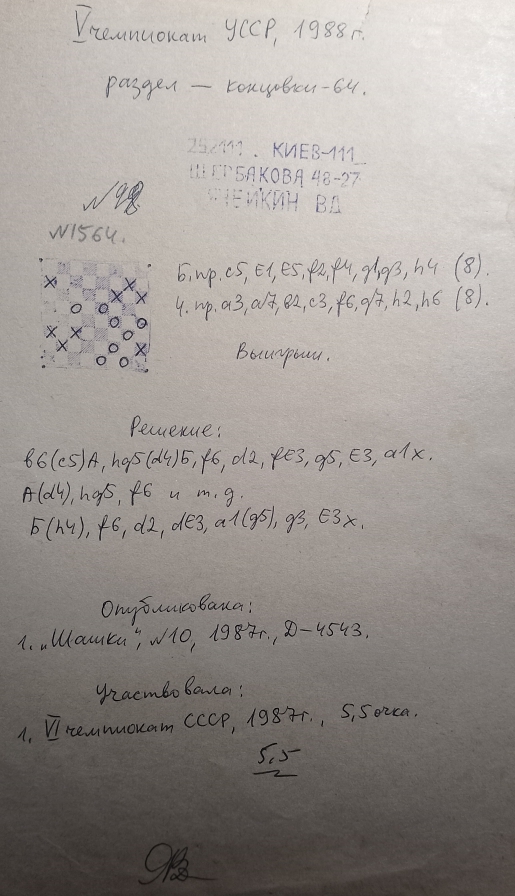 V чемпионат УССР, 1988г.
раздел — концовки-64.
252111. КИЕВ-111
ЩЕРБАКОВА 48-27
ВД
N 98
N1564.
Б.пр. c5, E1, E5, f2, f4, g1, g3, h4 (8).
Ч.пр. a3, a7, в2, c3, f6, g7, h2, h6 (8).
Выигрыш.
Решение:
в6(c5)А, hg5(d4)Б, f6, d2, fE3, g5, E3, a1x.
А(d4), hg5, f6 и т.д.
Б(h4), f6, d2, dE3, a1(g5), g3, E3x.
Опубликована:
1. „Шашки", N10, 1987г., Д-4543.
Участвовала:
1. VI чемпионат СССР, 1987г., 5,5 очка.
5,5